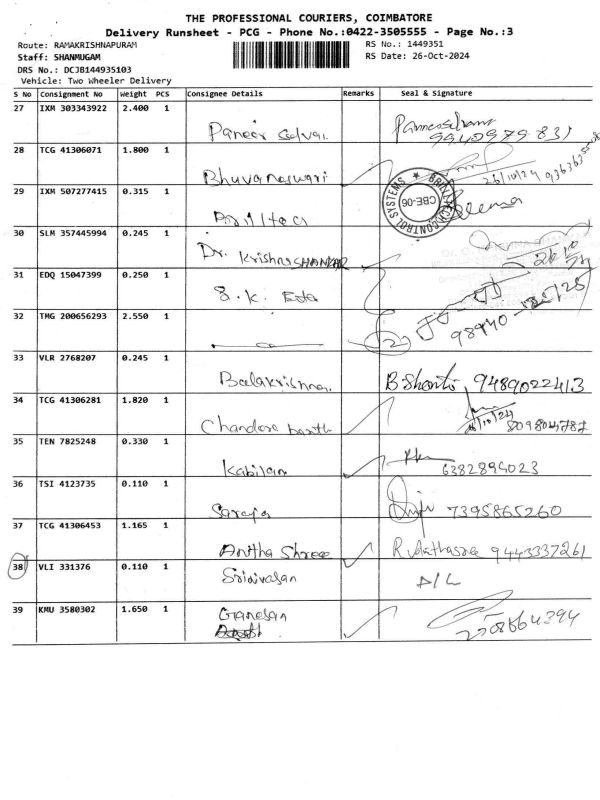 THE PROFESSIONAL COURIERS, COIMBATORE
Delivery Runsheet - PCG - Phone No.:0422-3505555 - Page No.:3
Route: RAMAKRISHNAPURAM RS No.: 1449351
Staff: SHANMUGAM RS Date: 26-Oct-2024
DRS No.: DCJB144935103
Vehicle: Two Wheeler Delivery
S No Consignment No Weight PCS Consignee Details Remarks Seal & Signature
27 IXM 303343922 2.400 1
Paneer Selvai
28 TCG 41306071 1.800 1
Bhuvaneswari 26/10/24
29 IXM 507277415 0.315 1
CONTROL SYSTEMS CBE-06
30 SLM 357445994 0.245 1
Dr. Krishna SHANKAR
31 EDQ 15047399 0.250 1
S.K.
32 TMG 200656293 2.550 1
33 VLR 2768207 0.245 1
Balakrishna B.Shanti 9489022413
34 TCG 41306281 1.820 1
Chandra 26/10/24
35 TEN 7825248 0.330 1
Kabilan 6382894023
36 TSI 4123735 0.110 1
Saroja 7395865260
37 TCG 41306453 1.165 1
Anitha Shree 9443337261
38 VLI 331376 0.110 1
Srinivasan D/L
39 KMU 3580302 1.650 1
Ganesan